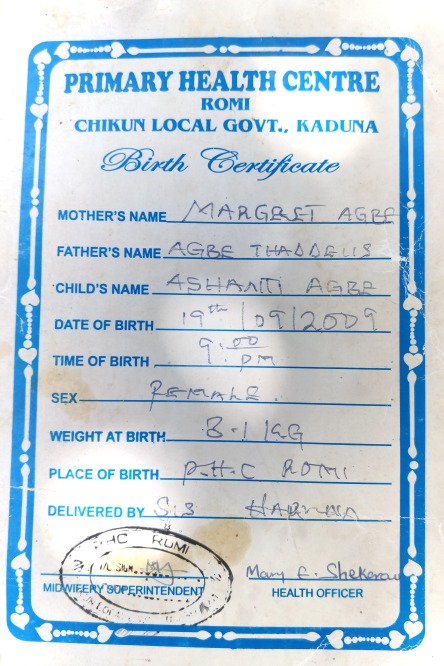 PRIMARY HEALTH CENTRE
ROMI
CHIKUN LOCAL GOVT., KADUNA
Birth Certificate
MOTHER'S NAME MARGRET AGBE
FATHER'S NAME AGBE THADDEUS
CHILD'S NAME ASHANTI AGBE
DATE OF BIRTH 19th/09/2009
TIME OF BIRTH 9:00 PM
SEX FEMALE.
WEIGHT AT BIRTH 3.1 KG
PLACE OF BIRTH P.H.C ROMI
DELIVERED BY SIS HARUNA
PHC ROMI
SIGN
Mary E. Shekarau
MIDWIFERY SUPERINTENDENT
HEALTH OFFICER